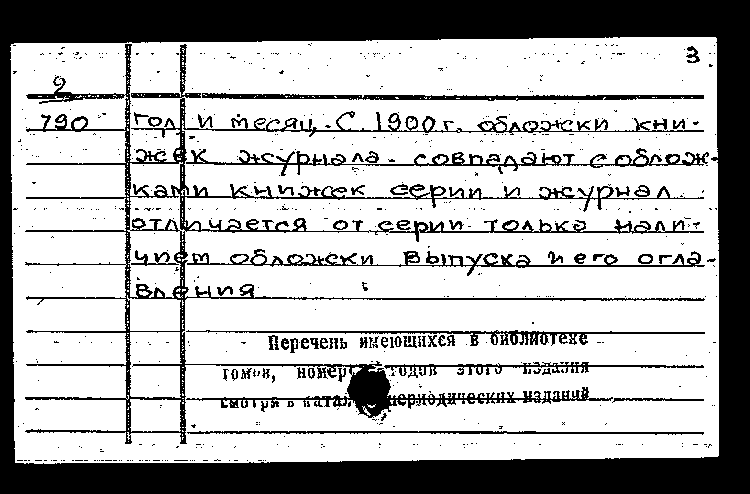 3
2
790 год и месяц. С 1900 г. обложки кни-
жек журнала совпадают с облож-
ками книжек серии и журнал
отличается от серии только нали-
чием обложки выпуска и его огла-
вления
Перечень имеющихся в библиотеке
томов, номеров годов этого издания
смотри в катал периодических изданий